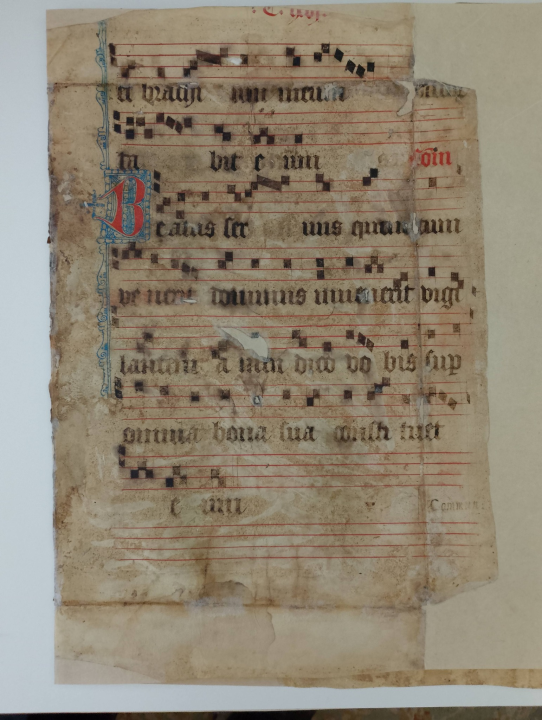 et brachi um meum
ta bit e um Com
Beatus ser uus quem cum
ve nerit dominus invenerit vigi
lantem a men dico vo bis sup
omnia bona sua consti tuet
e um